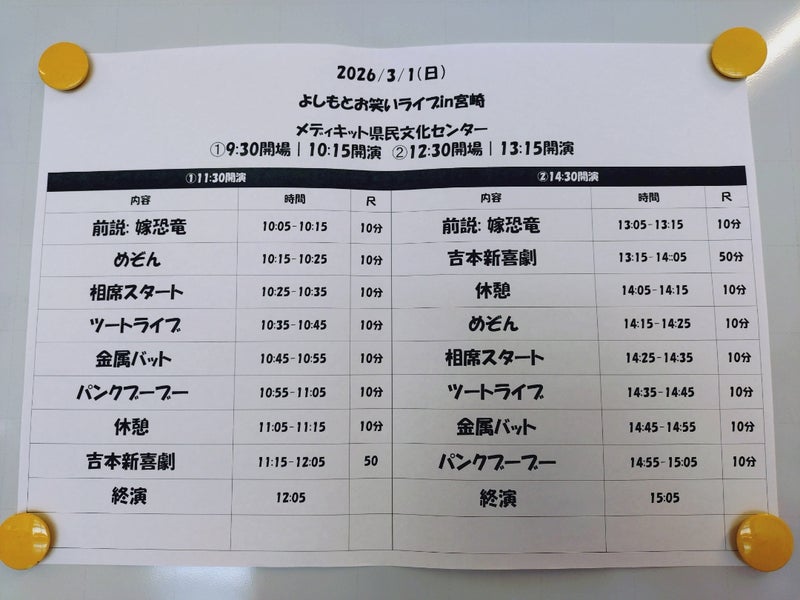 2026/3/1(日)
よしもとお笑いライブin宮崎
メディキット県民文化センター
①9:30開場 | 10:15開演 ②12:30開場 | 13:15開演
①11:30開演 ②14:30開演
内容 時間 尺 内容 時間 尺
前説: 嫁恐竜 10:05-10:15 10分 前説: 嫁恐竜 13:05-13:15 10分
めぞん 10:15-10:25 10分 吉本新喜劇 13:15-14:05 50分
相席スタート 10:25-10:35 10分 休憩 14:05-14:15 10分
ツートライブ 10:35-10:45 10分 めぞん 14:15-14:25 10分
金属バット 10:45-10:55 10分 相席スタート 14:25-14:35 10分
パンクブーブー 10:55-11:05 10分 ツートライブ 14:35-14:45 10分
休憩 11:05-11:15 10分 金属バット 14:45-14:55 10分
吉本新喜劇 11:15-12:05 50 パンクブーブー 14:55-15:05 10分
終演 12:05 終演 15:05